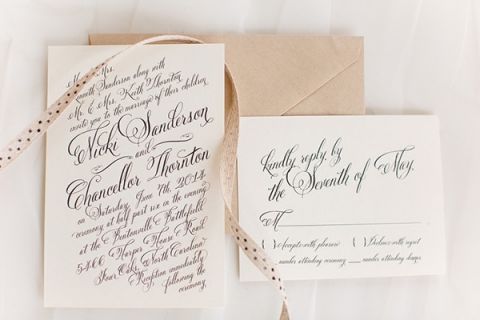 Mr. & Mrs.
Kenneth Sanderson along with
Mr. & Mrs. Keith Thornton
invite you to the marriage of their children
Nicki Sanderson
and
Chancellor Thornton
on Saturday, June 7th, 2014
ceremony at half past six in the evening
at the Bentonville Battlefield
5400 Harper House Road
Four Oaks, North Carolina
Reception immediately
following the
ceremony.
kindly reply by
the Seventh of May.
M
( ) Accepts with pleasure ( ) Declines with regret
number attending ceremony number attending